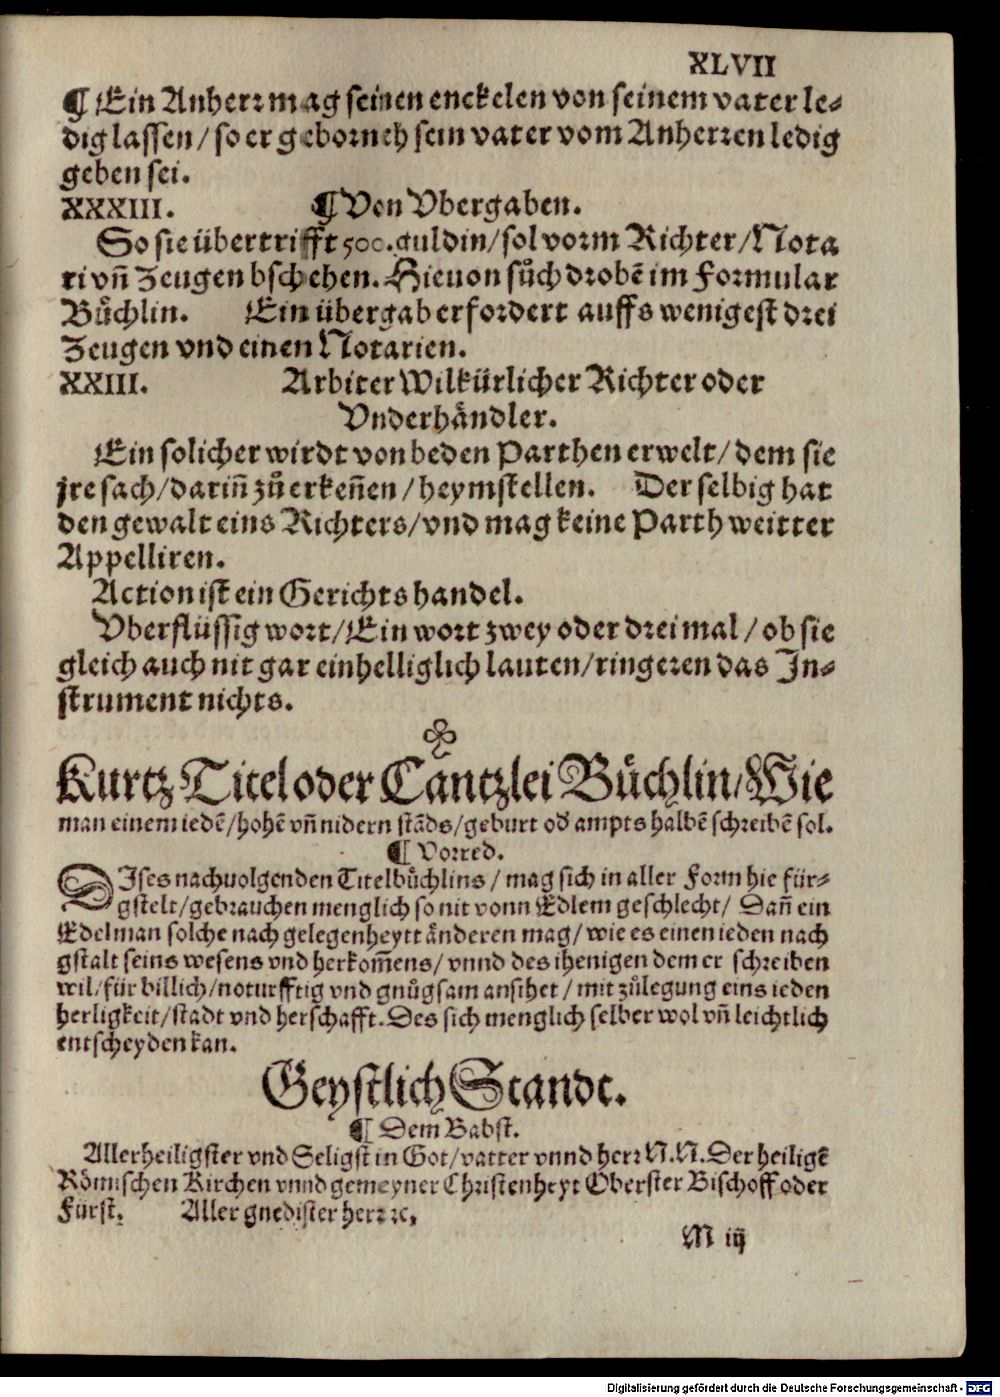 XLVII
¶ Ein Anherꝛ mag seinen enckelen von seinem vater le⸗
dig lassen / so er geborn eh sein vater vom Anherꝛen ledig
geben sei.
XXXIII. ¶ Von Vbergaben.
So sie übertrifft 500. guldin/ sol vorm Richter/ Nota
ri vñ Zeugen bschehen. Hieuon sůch drobē im Formular
Bůchlin. Ein übergab erfordert auffs wenigest drei
Zeugen vnd einen Notarien.
XXIII. Arbiter Wilkürlicher Richter oder
Vnderhändler.
Ein solicher wirdt von beden Parthen erwelt/ dem sie
jre sach/ darin̄ zů erkeñen / heymstellen. Der selbig hat
den gewalt eins Richters/ vnd mag keine Parth weitter
Appelliren.
Action ist ein Gerichts handel.
Vberflüssig wort/ Ein wort zwey oder drei mal / ob sie
gleich auch nit gar einhelliglich lauten/ ringeren das In⸗
strument nichts.
Kurtz Titel oder Cantzlei Bůchlin/ Wie
man einem iedē/ hohē vñ nidern stāds/ geburt oď ampts halbē schreibē sol.
¶ Vorred.
DIses nachuolgenden Titelbůchlins / mag sich in aller Form hie für⸗
gstelt/ gebrauchen menglich so nit vonn Edlem geschlecht/ Dañ ein
Edelman solche nach gelegenheytt änderen mag/ wie es einen ieden nach
gstalt seins wesens vnd herkom̄ens/ vnnd des ihenigen dem er schreiben
wil/ für billich/ noturfftig vnd gnůgsam ansihet / mit zůlegung eins ieden
herligkeit/ stadt vnd herschafft. Des sich menglich selber wol vñ leichtlich
entscheyden kan.
Geystlich Standt.
¶ Dem Babst.
Allerheiligster vnd Seligst in Got/ vatter vnnd herꝛ N. N. Der heiligē
Römischen Kirchen vnnd gemeyner Christenheyt Oberster Bischoff oder
Fürst. Aller gnedister herꝛ ꝛc,
M iij
Digitalisierung gefördert durch die Deutsche Forschungsgemeinschaft - DFG